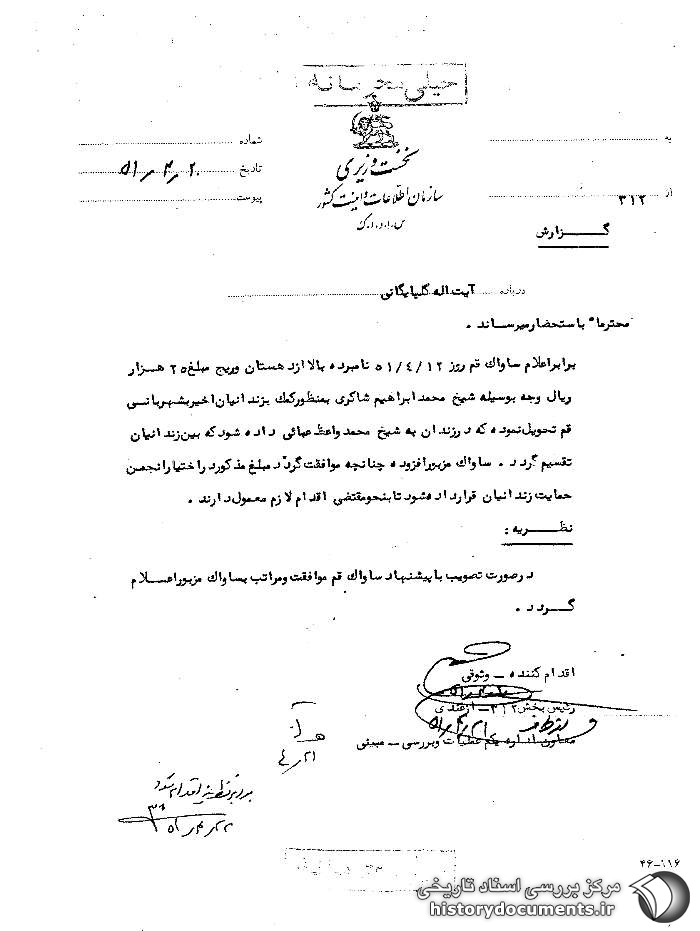 خیلی محرمانه
به
شماره
نخست وزیری
تاریخ ۵۱/۴/۲۰
سازمان اطلاعات و امنیت کشور
از ۳۱۲
پیوست
س.ا.و.ا.ک
گزارش
درباره آیت اله گلپایگانی
محترماً باستحضار میرساند .
برابر اعلام ساواك قم روز ۵۱/۴/۱۲ نامبرده بالا از دهستان وریج مبلغ ۲۵ هزار
ریال وجه بوسیله شیخ محمد ابراهیم شاکری بمنظور کمك بزندانیان اخیر بشهربانی
قم تحویل نموده که در زندان به شیخ محمد واعظ عبائی داده شود که بین زندانیان
تقسیم گردد . ساواك مزبور افزوده چنانچه موافقت گردد مبلغ مذکور در اختیار انجمن
حمایت زندانیان قرار داده شود تا بنحو مقتضی اقدام لازم معمول دارند .
نظریه :
در صورت تصویب با پیشنهاد ساواك قم موافقت و مراتب بساواك مزبور اعلام
گردد .
اقدام کننده - وثوقی
رئیس بخش ۳۱۲ - ازغندی
۵۱/۴/۲۱
معاون اداره یکم عملیات و بررسی -
۴/۲۱
برابر نظریه اقدام شود
۵۱/۴/۲۲
۴۶-۱۱۶
مرکز بررسی اسناد تاریخی
historydocuments.ir